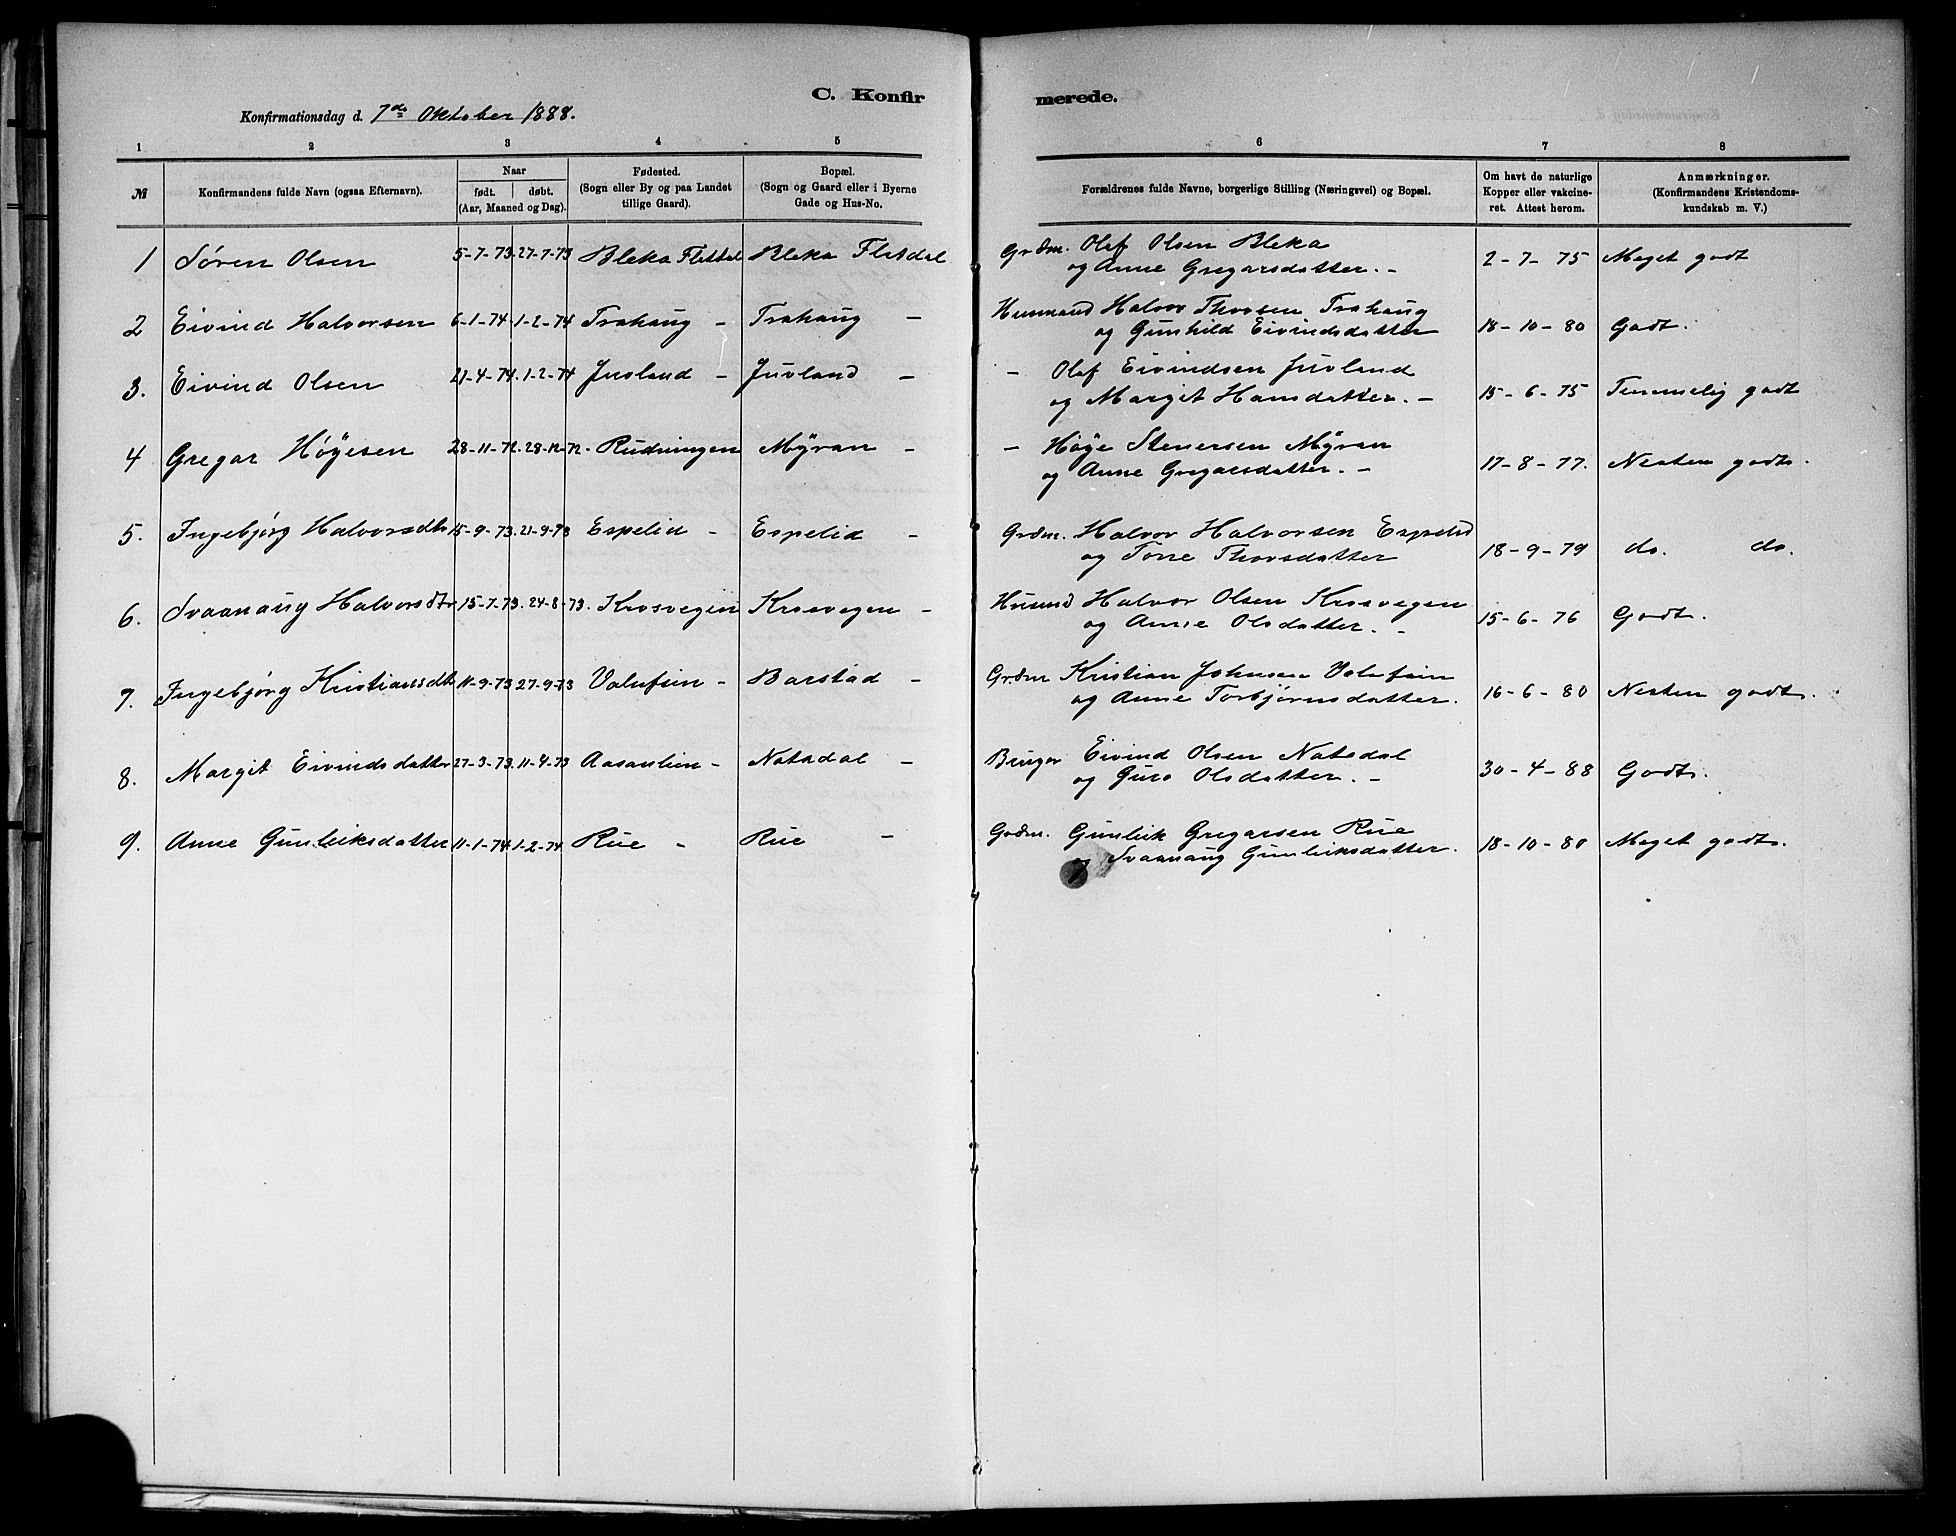 C. Konfir
merede.
Konfirmationsdag d. 7de Oktober 1888.
1 2 3 4 5 6 7 8
№ Konfirmandens fulde Navn (ogsaa Efternavn).
Naar
født. døbt.
(Aar, Maaned og Dag).
Fødested.
(Sogn eller By og paa Landet
tillige Gaard).
Bopæl.
(Sogn og Gaard eller i Byerne
Gade og Hus-No.
Forældrenes fulde Navne, borgerlige Stilling (Næringsvei) og Bopæl.
Om havt de naturlige
Kopper eller vakcine-
ret. Attest herom.
Anmærkninger.
(Konfirmandens Kristendoms-
kundskab m. V.)
1 Søren Olsen 5-7-73 27-7-73 Bleka Flatdal Bleka Flatdal Grdm. Olaf Olsen Bleka
og Anne Gregarsdatter. - 2-7-75 Meget godt
2 Eivind Halvorsen 6-1-74 1-2-74 Trahaug - Trahaug - Husmand Halvor Thorsen Trahaug
og Gunhild Eivindsdatter 18-10-80 Godt.
3. Eivind Olsen 21-4-74. 1-2-74 Juvland - Juvland - - Olaf Eivindsen Juvland
og Margit Hansdatter. - 15-6-75 Temmelig godt
4 Gregar Høyesen 28-11-72. 28-12-72. Rudningen Mÿran - - Høÿe Stenersen Mÿran
og Anne Gregarsdatter. - 17-8-77. Nesten godt.
5. Ingebjørg Halvorsdtr 15-9-73. 21-9-73 Espelid - Espelid - Grdm. Halvor Halvorsen Espelid
og Tone Thorsdatter 18-9-79 do. do.
6. Svaanaug Halvorsdtr 15-7-73. 24-8-73. Krosvegen Krosvegen - Husmd Halvor Olsen Krosvegen
og Anne Olsdatter. - 15-6-76 Godt.
7. Ingebjørg Kristiansdtr 11-9-73 27-9-73 - Barstad - Grdm Kristian Johnsen
og Anne Torbjørnsdatter. 16-6-80 Nesten godt.
8. Margit Eivindsdatter 27-3-73. 11-4-73 Aasanlien - Natadal - Bruger Eivind Olsen Natadal
og Guro Olsdatter. - 30-4-88 Godt.
9. Anne Gunleiksdatter 11-1-74 1-2-74 Rue - Rue - Grdm. Gunleik Gregarsen Rue
og Svaanaug Gunleiksdatter. 18-10-80 Meget godt.